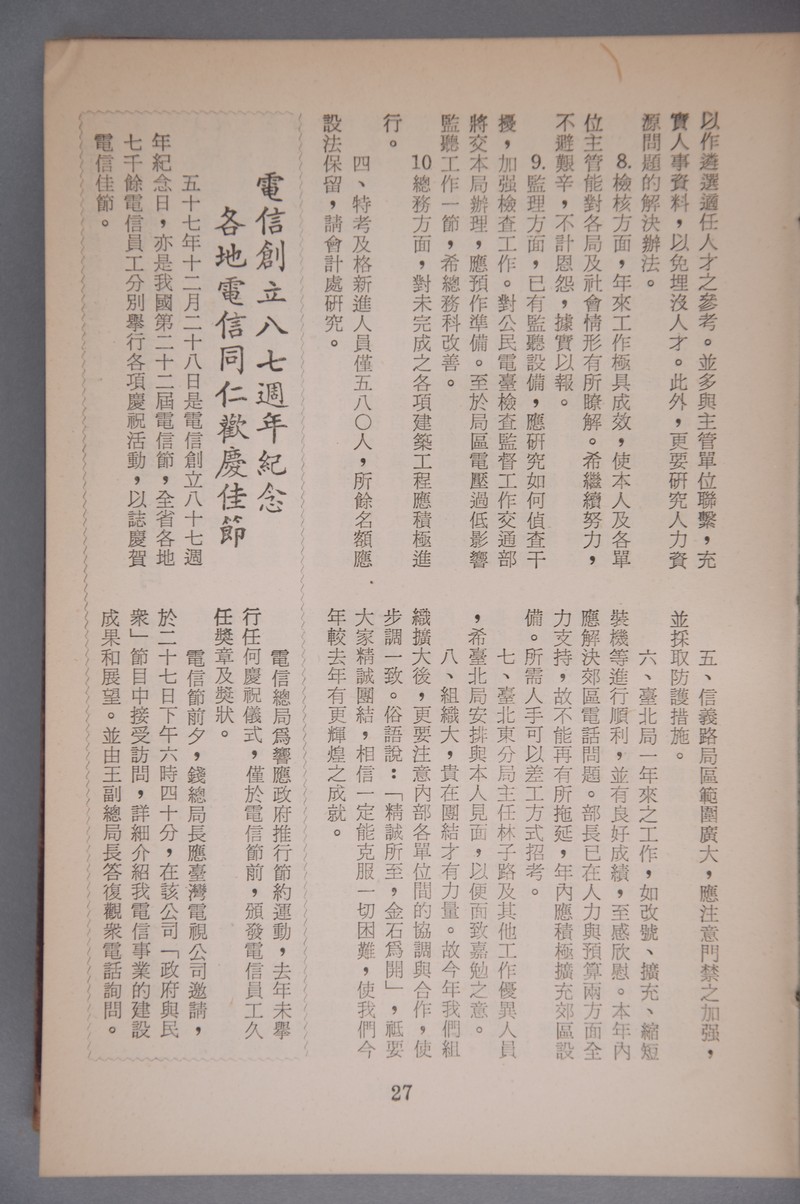 以作遴選適任人才之參考。並多與主管單位聯繫，充
實人事資料，以免埋沒人才。此外，更要研究人力資
源問題的解決辦法。
8.檢核方面，年來工作極具成效，使本人及各單
位主管能對各局及社會情形有所瞭解。希繼續努力，
不避艱辛，不計恩怨，據實以報。
9.監理方面，已有監聽設備，應研究如何偵查干
擾，加强檢查工作。對公民電臺檢查監督工作交通部
將交本局辦理，應預作準備。至於局區電壓過低影響
監聽工作一節，希總務科改善。
10總務方面，對未完成之各項建築工程應積極進
行。
四、特考及格新進人員僅五八〇人，所餘名額應
設法保留，請會計處研究。
五、信義路局區範圍廣大，應注意門禁之加强，
並採取防護措施。
六、臺北局一年來之工作，如改號、擴充、縮短
裝機等進行順利，並有良好成績，至感欣慰。本年內
應解決郊區電話問題。部長已在人力與預算兩方面全
力支持，故不能再有所拖延，年內應積極擴充郊區設
備。所需人手可以差工方式招考。
七、臺北東分局主任林子路及其他工作優異人員
，希臺北局安排與本人見面，以便面致嘉勉之意。
八、組織大，貴在團結才有力量。故今年我們組
織擴大後，更要注意內部各單位間的協調與合作，使
步調一致。俗語說：「精誠所至，金石爲開」，祇要
大家精誠團結，相信一定能克服一切困難，使我們今
年較去年有更輝煌之成就。
電信創立八七週年紀念
各地電信同仁歡慶佳節
五十七年十二月二十八日是電信創立八十七週
年紀念日，亦是我國第二十二屆電信節，全省各地
七千餘電信員工分別舉行各項慶祝活動，以誌慶賀
電信佳節。
電信總局爲響應政府推行節約運動，去年未舉
行任何慶祝儀式，僅於電信節前，頒發電信員工久
任獎章及獎狀。
電信節前夕，錢總局長應臺灣電視公司邀請，
於二十七日下午六時四十分，在該公司「政府與民
衆」節目中接受訪問，詳細介紹我電信事業的建設
成果和展望。並由王副總局長答復觀衆電話詢問。
27